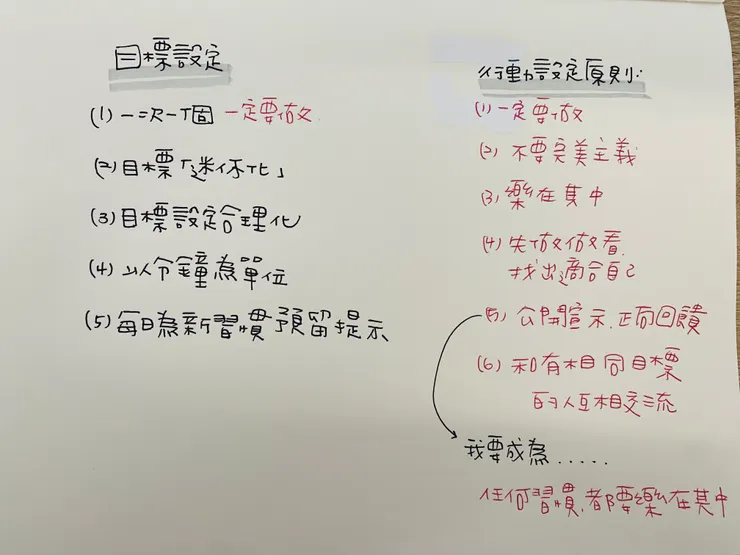 目標設定
(1) 一次一個 一定要做
(2) 目標「迷你化」
(3) 目標設定合理化
(4) 以分鐘為單位
(5) 每日為新習慣預留提示
行動設定原則:
(1) 一定要做
(2) 不要完美主義
(3) 樂在其中
(4) 先做做看,
找出適合自己
(5) 公開宣示,正向回饋
(6) 和有相同目標
的人互相交流
我要成為.....
任何習慣,都要樂在其中